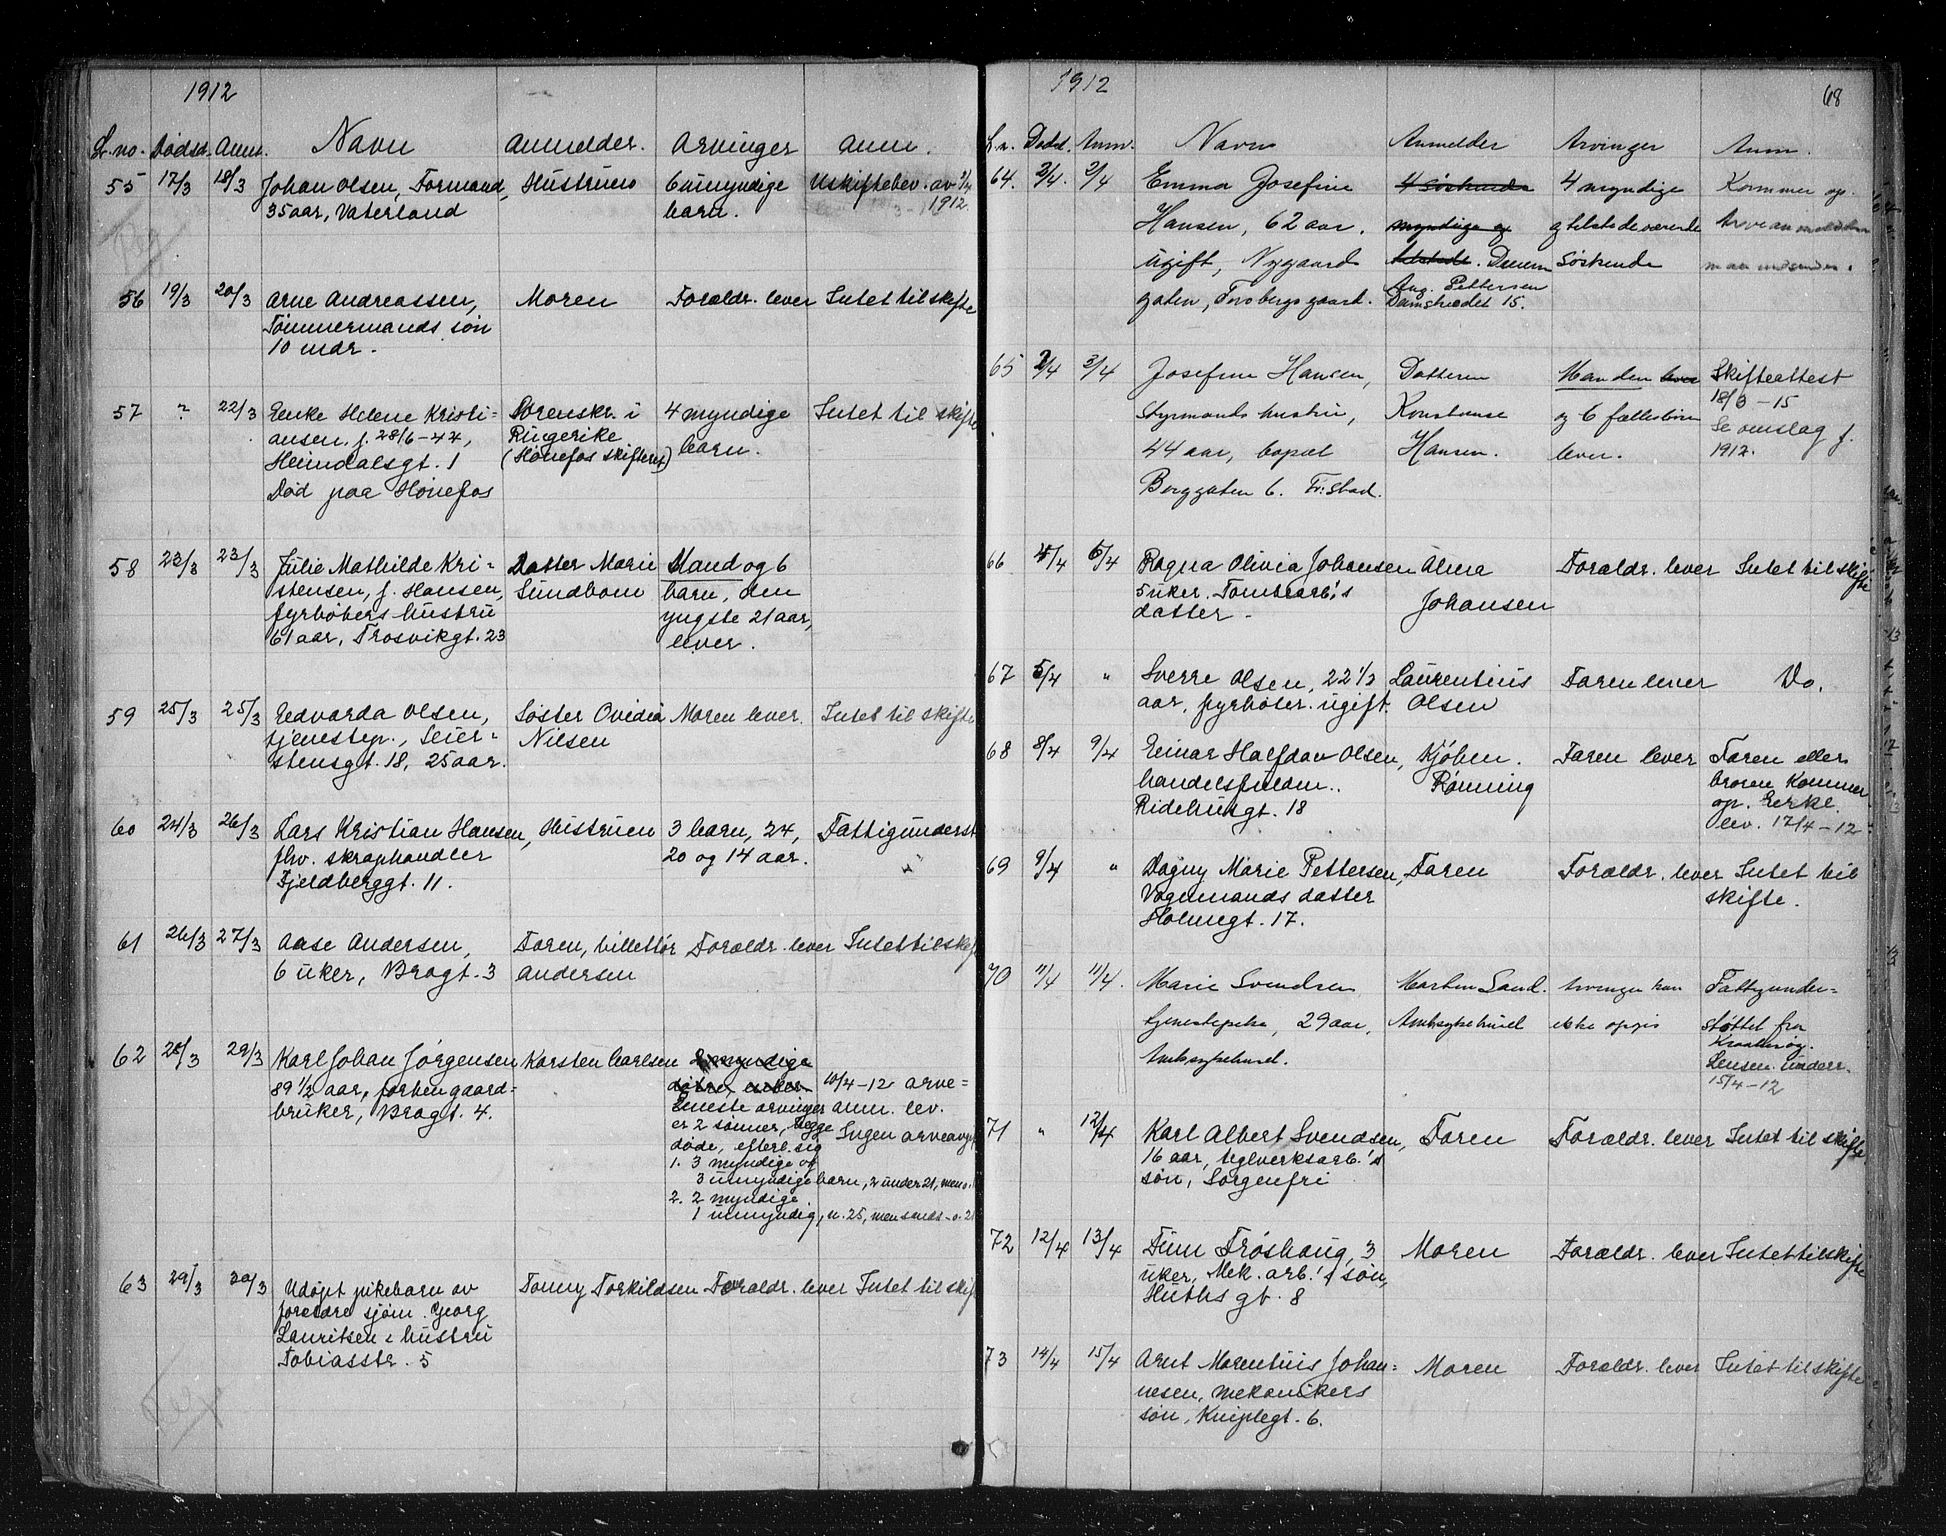 1912
L.no. Dødsd. Anm. Navn Anmelder. Arvinger Anm.
55 17/3 18/3 Johan Olsen, Formand, Hustruen 6 umyndige Uskiftebev. av
35 aar, Vaterland barn. 1912.
56 19/3 20/3 Arne Andreassen, Moren Forældr. lever Intet til skifte
Tømmermands søn
10 mdr.
57 ? 22/3 Enke Helene Kristi- Sorenskr. i 4 myndige Intet til skifte
ansen, f. 28/6-44, Ringerike barn.
Heimdalsgt. 1 (Hønefos skifteret)
Død paa Hønefos
58 23/3 23/3 Julie Mathilde Kri- Datter Marie Mand og 6
stensen, f. Hansen, Sundbom barn, den
fyrbøters hustru yngste 21 aar,
61 aar, Trosvikgt. 23 lever.
59 25/3 25/3 Edvarda Olsen, Søster Ovidia Moren lever. Intet til skifte
tjenestep., Seier- Nilsen
stensgt. 18, 25 aar.
60 24/3 26/3 Lars Kristian Hansen, Hustruen 3 barn, 24, Fattigunderst.
fhv. skraphandler 20 og 14 aar.
Fjeldberggt. 11.
61 26/3 27/3 Aase Andersen, Faren, billettør Forældr. lever Intet til skifte
6 uker, Bragt. 3 Andersen
62 28/3 29/3 Karl Johan Jørgensen Karsten Carlsen 2 myndige
89 1/2 aar, forhen gaard- døtre lever 10/4-12 arve-
bruker, Bragt. 4. Eneste arvinger anm. lev.
er 2 sønner, begge Ingen arveavgift
døde, efterl. sig
1. 3 myndige og
3 umyndige barn, 2 under 21, men o.
2. 2 myndige
1 umyndig, u. 25, men o. 21
63 29/3 30/3 Udøpt pikebarn av Fanny Torkildsen Forældr. lever Intet til skifte
forældre sjøm. Georg
Lauritsen & hustru
Tobiasstr. 5
1912 68
L.n. Dødsd. Anm. Navn Anmelder Arvinger Anm.
64. 2/4. 2/4 Emma Josefine 4 søskende 4 myndige Kommer op.
Hansen, 62 aar, myndige og og tilstedeværende Arveanmeldelse
ugift, Nygaards tilstede. Søskende maa indsendes.
gaten, Torsbergs gaard. Aug. Pettersen
Damstrædet 15.
65 2/4 3/4 Josefine Hansen, Datteren Manden lever Skifteattest
Styrmands hustru, Konstanse og 6 fællesbørn 18/3-15
44 aar, bopæl Hansen. lever. Se omslag f.
Berggaten 6. Fr.stad. 1912.
66 4/4 6/4 Ragna Olivia Johansen Alma Forældr. lever Intet til skifte
5 uker. Tomtearb.'s Johansen
datter.
67 5/4 " Sverre Olsen, 22 1/2 Laurentius Faren lever Do.
aar, fyrbøter. ugift. Olsen
68 8/4 9/4 Einar Halfdan Olsen, Kjøbm. Faren lever Faren eller
handelsfuldm.. Rønning broren kommer
Ridehusgt. 18 op. Erkl.
lev. 17/4-12
69 9/4 " Dagny Marie Pettersen, Faren Forældr. lever Intet til
Vognmands datter skifte.
Holmegt. 17.
70 11/4 11/4. Marie Svendsen Marten Sand. Arvinger kan Fattigunder-
tjenestepike, 29 aar, Amtssykehuset ikke opgis støttet fra
Amtssykehuset. Kraakerøy.
Lensm. underr.
15/4-12
71 " 12/4 Karl Albert Svendsen, Faren Forældr. lever Intet til skifte
16 aar, teglverksarb.'s
søn, Sorgenfri
72 12/4 13/4 Finn Frøshaug, 3 Moren Forældr. lever Intet til skifte
uker, Mek. arb.'s søn,
Huths gt. 8
73 14/4 15/4 Arnt Morentius Johan- Moren Forældr. lever Intet til skifte
nesen, mekanikers
søn, Kniplegt. 6.